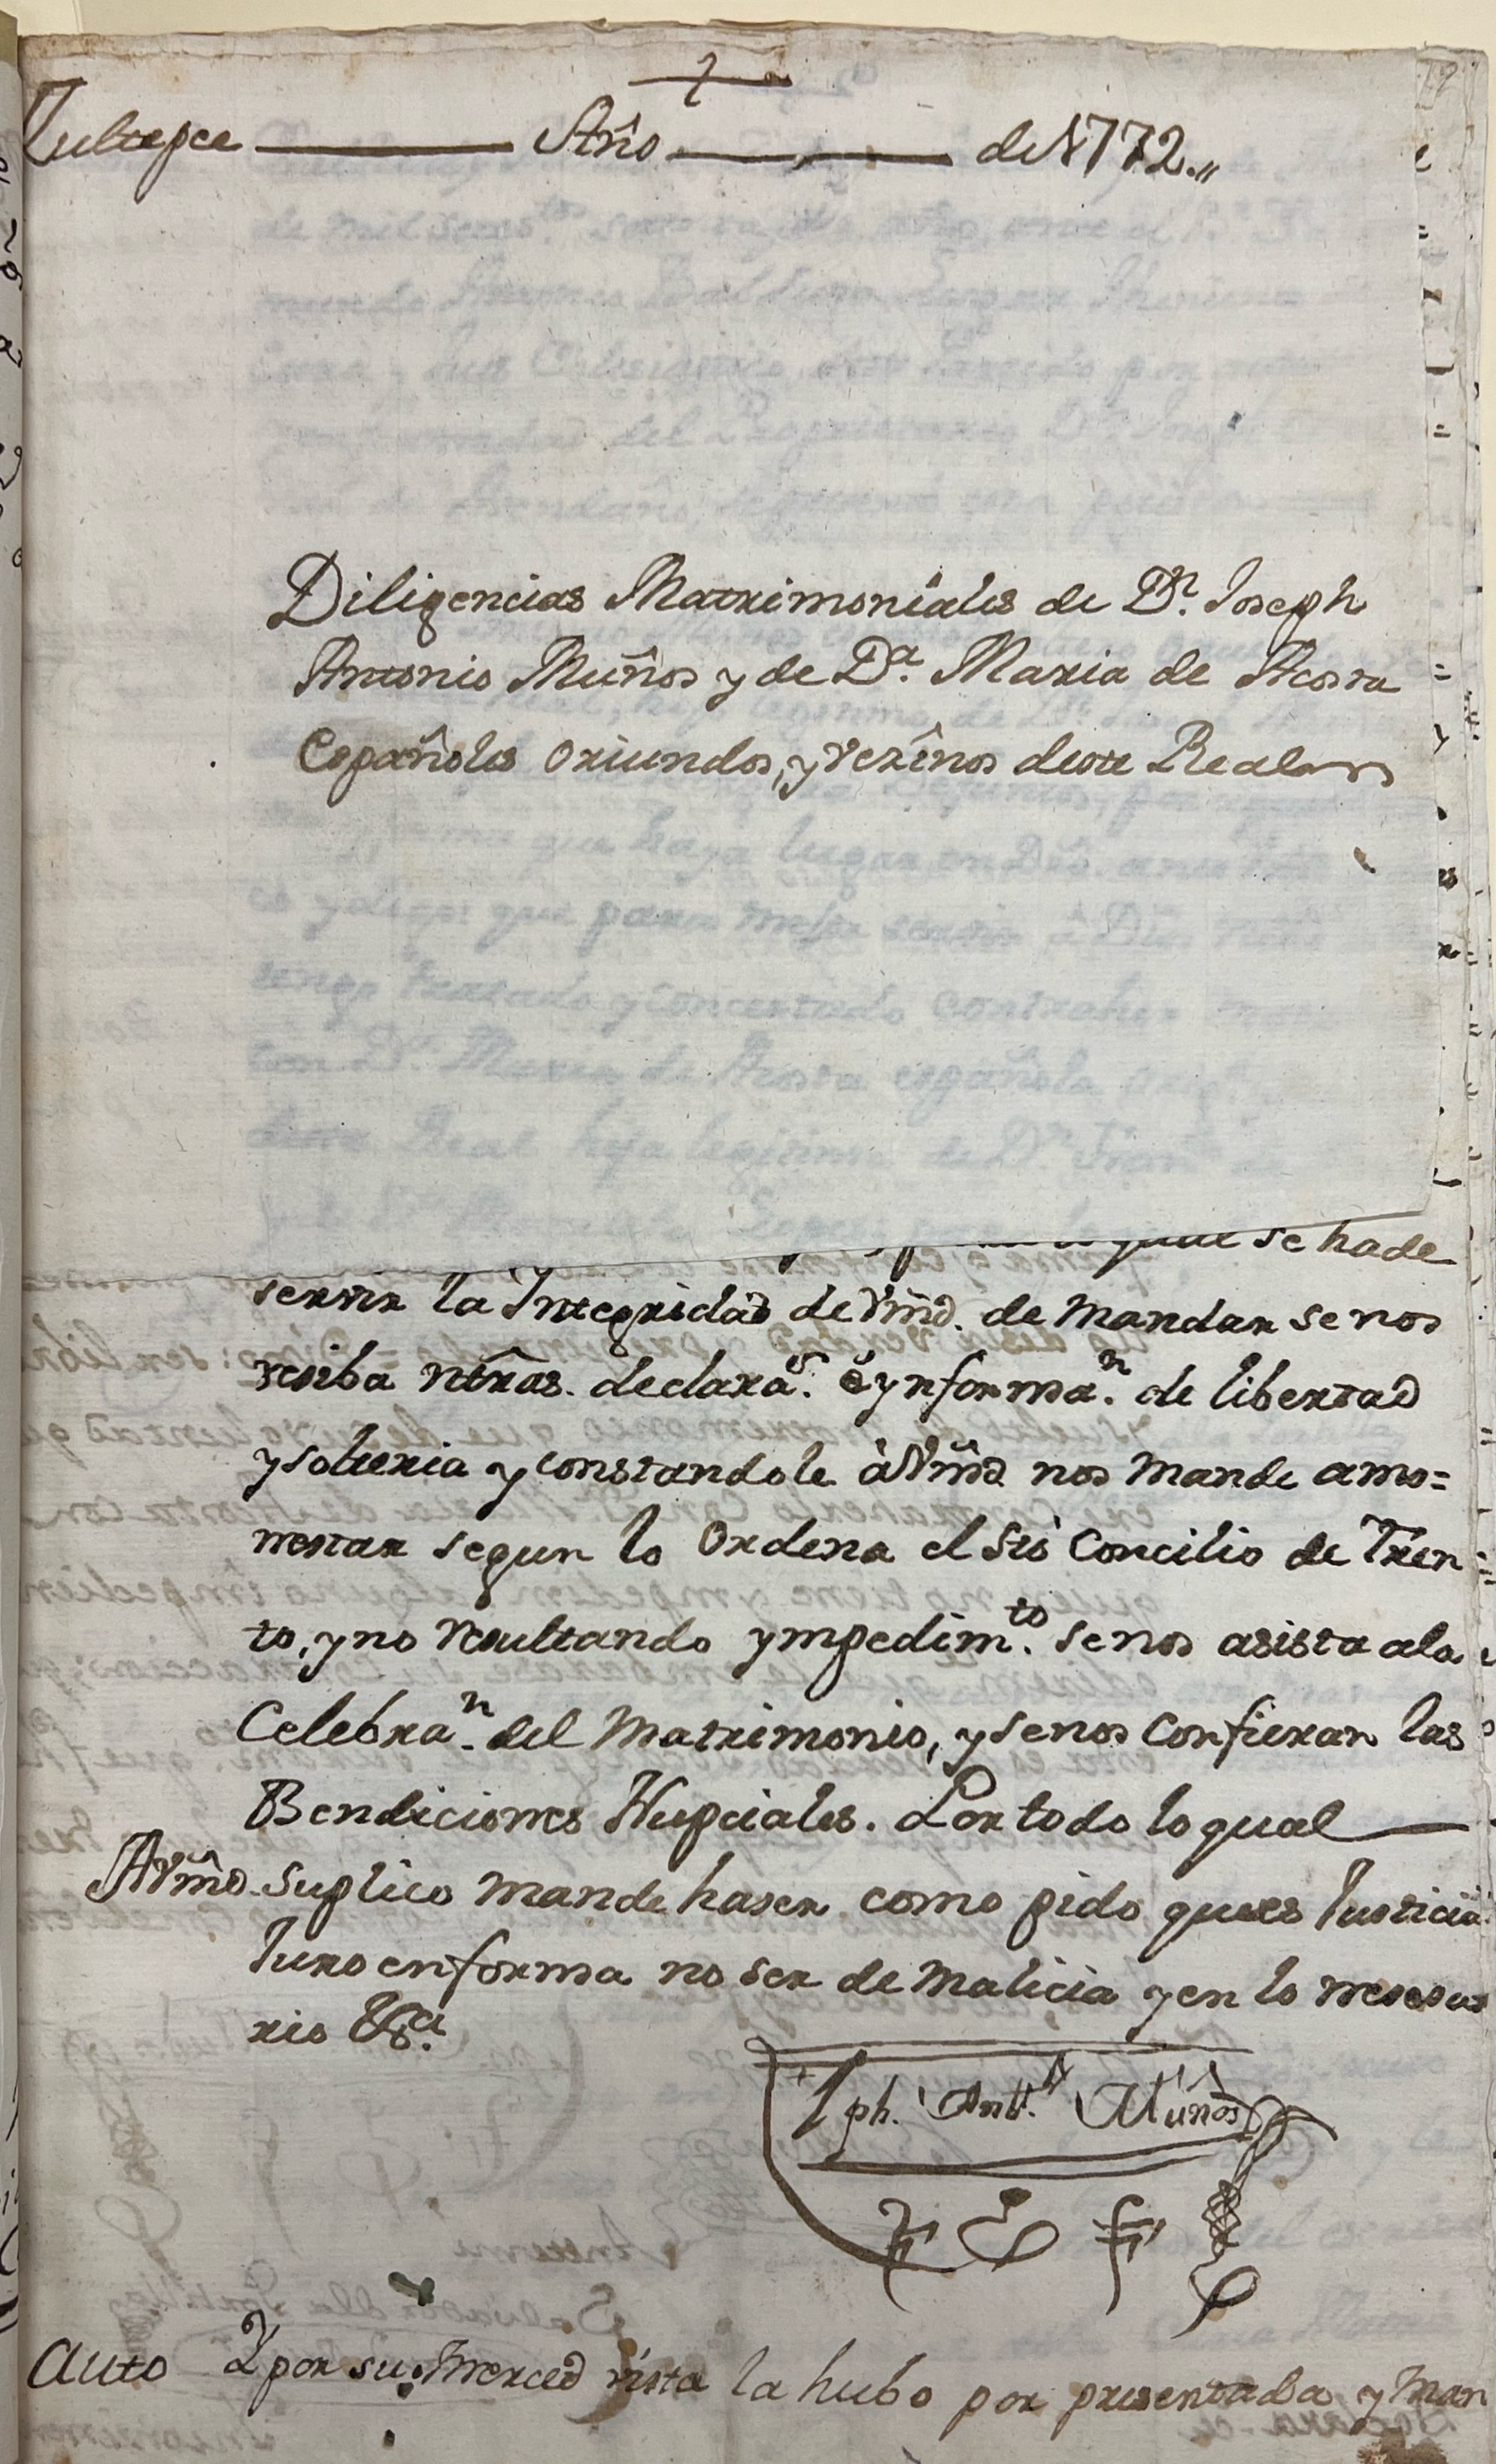 Zultepec Año de 1772.,,
Diligencias Matrimoniales de Dn. Joseph
Antonio Muños y de Da. Maria de Acosta
Españoles oriundos, y vezinos deste Real
se hade
servir la Integridad de Vmd. de mandar se nos
resiba ntras. declaras. é ynforman. de libertad
y solteria y constandole à Vmd nos mande amo=
nestar segun lo Ordena el Sto Concilio de Tren
to, y no resultando ympedimto. se nos asista ala
Celebran. del Matrimonio, y se nos confieran las
Bendiciones Nupciales. Por todo lo qual
A Vmd. suplico mande haser como pido que es Justicia
Juro en forma no ser de malicia y en lo nesesa
rio &a.
Jph. Anto. Muños
Auto Y por su Merced vista la hubo por presentada y Man